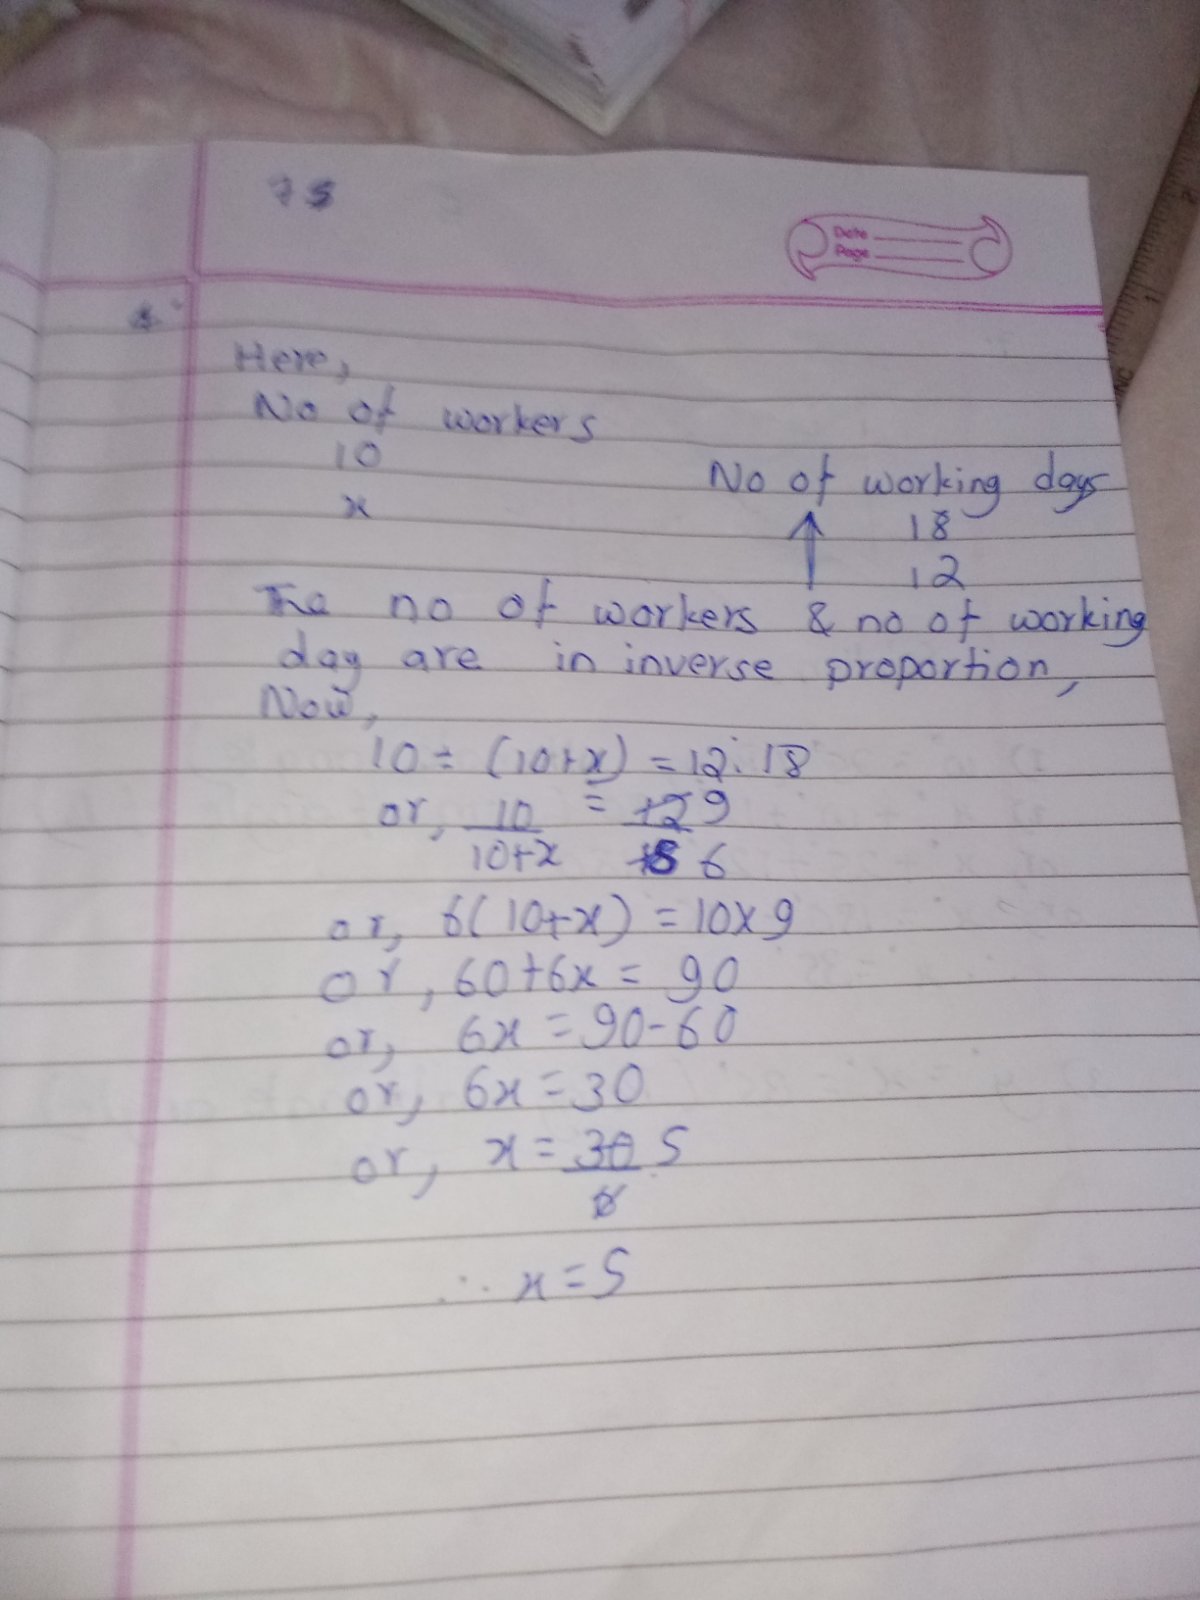 75
Date
Page
Here,
No of workers
10
No of working days
x
18
12
The no of workers & no of working
day are in inverse proportion,
Now,
10 ÷ (10+x) = 12:18
or, 10/10+x = 12 9/18 6
or, 6(10+x) = 10x9
or, 60+6x = 90
or, 6x = 90-60
or, 6x = 30
or, x = 30 5/6
∴ x = 5